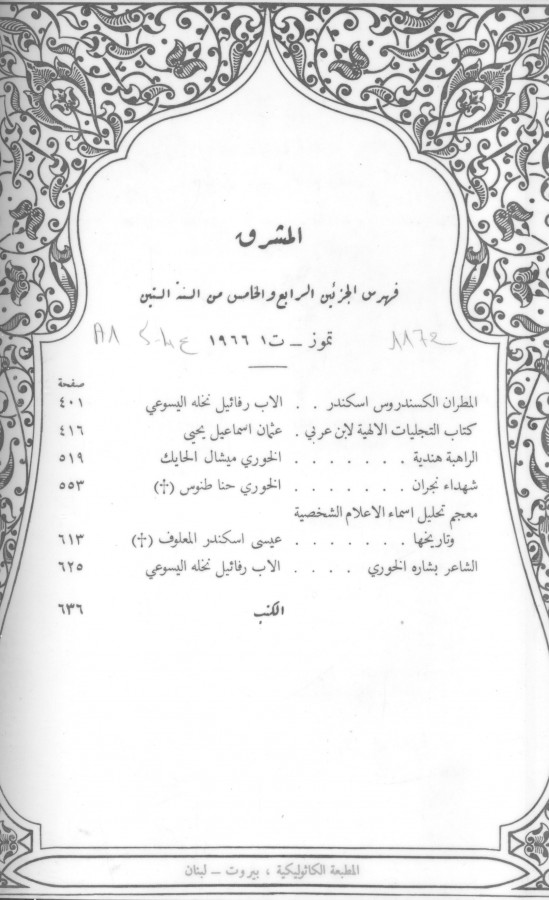 المشرق
فهرس الجزئين الرابع والخامس من السنة الستين
تموز – ت١ ١٩٦٦
1172
صفحة
المطران الكسندروس اسكندر . . الاب رفائيل نخله اليسوعي ٤٠١
كتاب التجليات الالهية لابن عربي . عثمان اسماعيل يحيى ٤١٦
الراهبة هندية . . . . . . . الخوري ميشال الحايك ٥١٩
شهداء نجران . . . . . . . الخوري حنا طنوس (✝) ٥٥٣
معجم تحليل اسماء الاعلام الشخصية
وتاريخها . . . . . . . عيسى اسكندر المعلوف (✝) ٦١٣
الشاعر بشاره الخوري . . . . الاب رفائيل نخله اليسوعي ٦٢٥
الكتب ٦٣٦
المطبعة الكاثوليكية ، بيروت – لبنان